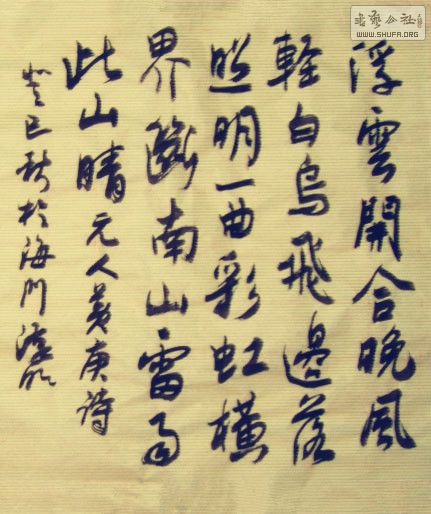 浮雲開合晚風
輕白鳥飛邊落
照明一曲彩虹橫
界斷南山雷雨
北山晴元人黃庚詩
癸巳秋於海門
書藝公社
WWW.SHUFA.ORG